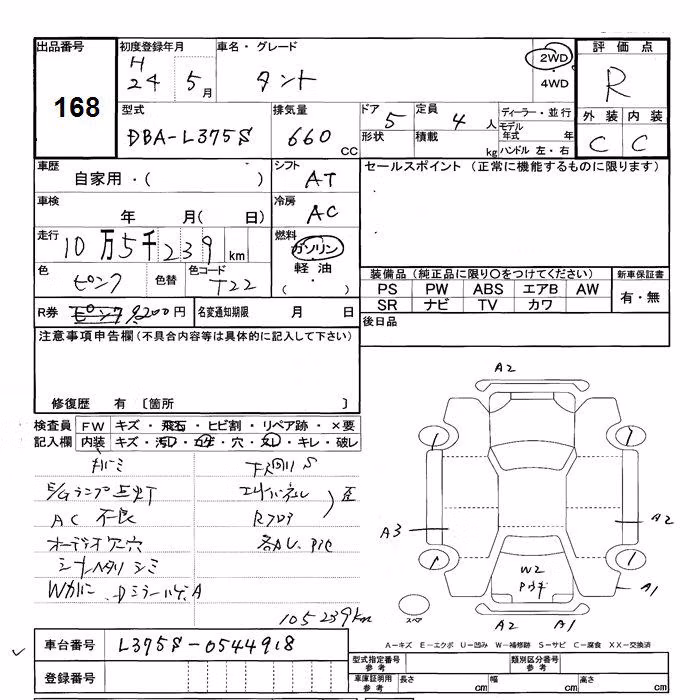 出品番号 初度登録年月 車名・グレード 2WD 評価点
168 H 24 5月 タント 4WD R
型式 排気量 ドア 定員 ディーラー・並行 外装 内装
DBA-L375S 660 CC 5 4人 モデル年式 年 C C
形状 積載 kg ハンドル 左・右
車歴 シフト セールスポイント (正常に機能するものに限ります)
自家用・( ) AT
車検 冷房
年 月( 日) AC
走行 燃料
10万5千239 km ガソリン
色 色替 色コード 軽油 装備品 (純正品に限り○をつけてください) 新車保証書
ピンク T22 (・) PS PW ABS エアB AW 有・無
R券 ピンク 9200円 名変通知期限 月 日 SR ナビ TV カワ
後日品
注意事項申告欄 (不具合内容等は具体的に記入して下さい)
修復歴 有 〔箇所 〕
検査員 FW キズ・飛石・ヒビ割・リペア跡・×要
記入欄 内装 キズ・汚れ・コゲ・穴・スレ・キレ・破レ
下廻りS
E/Gランプ点灯
AC 不良 Rフロア 歪
オーディオ欠 穴 各AU、PIC
シートヘタリ シミ
105239km
A2
A3 A2
W2
A1
スペア
A2 A1
A-キズ E-エクボ U-凹み W-補修跡 S-サビ C-腐食 XX-交換済
車台番号 L375S-0544918
型式指定番号 参考 類別区分番号 参考
登録番号 車庫証明用 参考 長さ cm 幅 cm 高さ cm